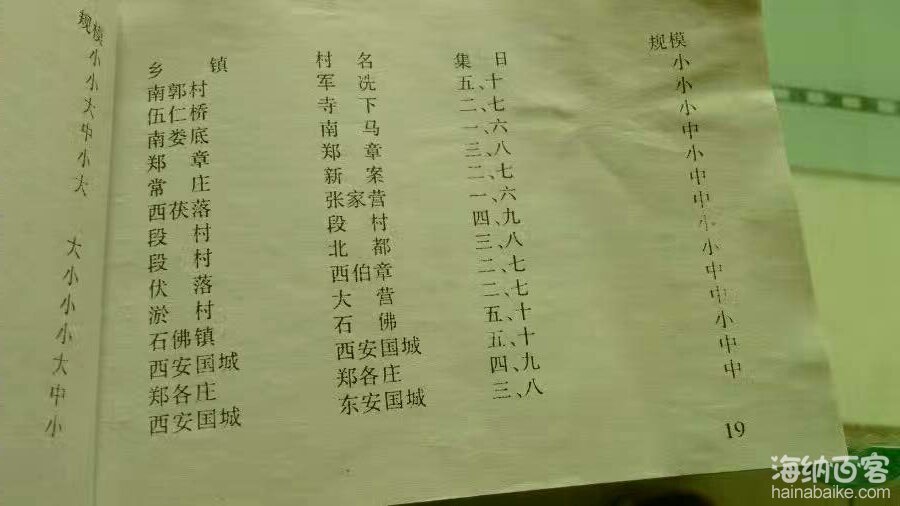 规模
小
小
大
中
小
大
大
小
小
小
大
中
小
乡 镇 村 名 集 日 规模
南郭村 军 冼 五、十 小
伍仁桥 寺 下 二、七 小
南娄底 南 马 一、六 小
郑 章 郑 章 三、八 中
常 庄 新 案 二、七 小
西茯落 张家营 一、六 中
段 村 段 村 四、九 中
段 村 北 都 三、八 小
伏 落 西伯章 二、七 小
淤 村 大 营 二、七 中
石佛镇 石 佛 五、十 中
西安国城 西安国城 五、十 小
郑各庄 郑各庄 四、九 中
西安国城 东安国城 三、八 中
19
海纳百客
hainabaike.com